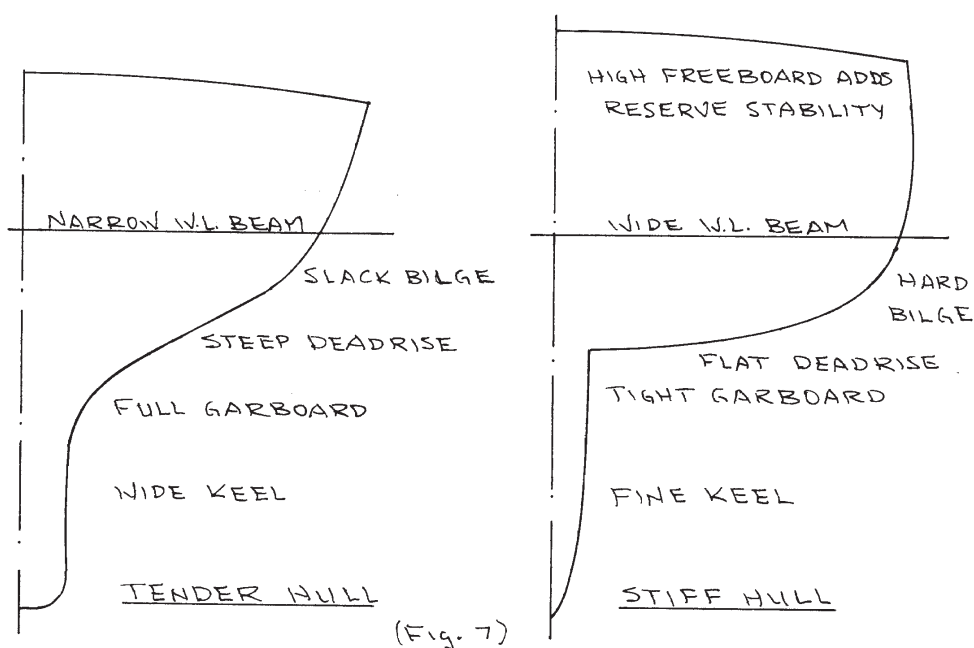 NARROW W.L. BEAM
SLACK BILGE
STEEP DEADRISE
FULL GARBOARD
WIDE KEEL
TENDER HULL
HIGH FREEBOARD ADDS
RESERVE STABILITY
WIDE W.L. BEAM
HARD
BILGE
FLAT DEADRISE
TIGHT GARBOARD
FINE KEEL
STIFF HULL
(Fig. 7)